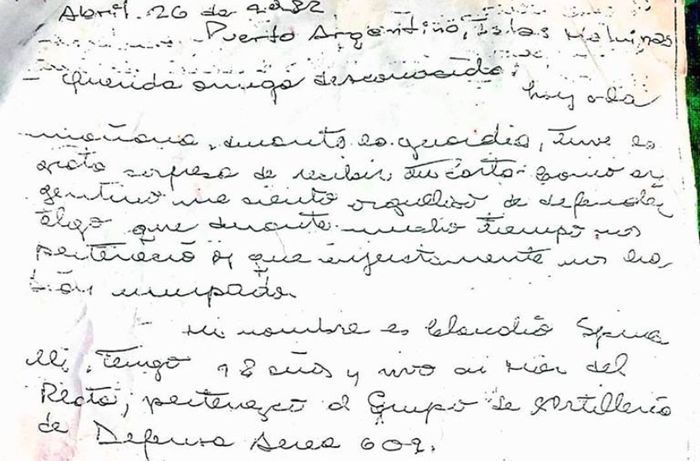 Abril 26 de 1982
Puerto Argentino, Islas Malvinas
- Querida amiga desconocida:
hoy a la
mañana, durante la guardia, tuve la
grata sorpresa de recibir tu carta. Como ar
gentino me siento orgulloso de defender
algo que durante mucho tiempo nos
perteneció y que injustamente nos ha
bían usurpado.
Mi nombre es Claudio Spina
lli, tengo 18 años y vivo en Mar del
Plata, pertenezco al Grupo de Artillería
de Defensa Aerea 602.